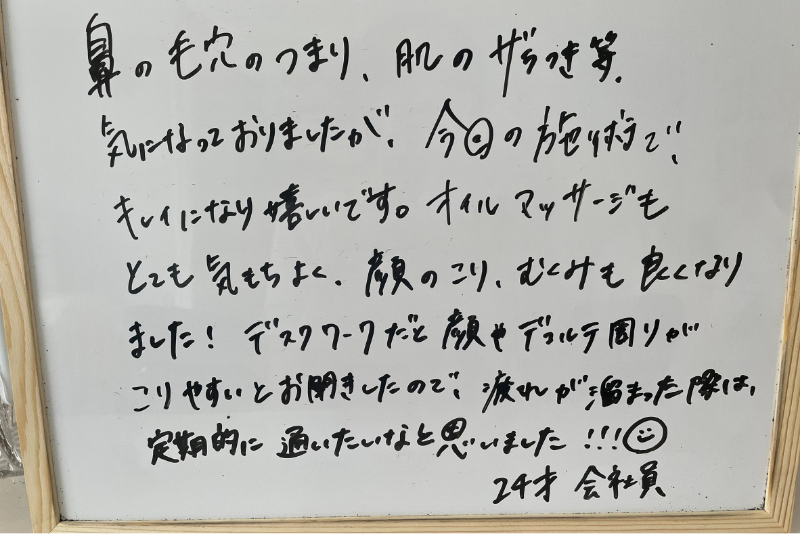 鼻の毛穴のつまり、肌のザラつき等、
気になっておりましたが、今回の施術で、
キレイになり嬉しいです。オイルマッサージも
とても気もちよく、顔のこり、むくみも良くなり
ました！デスクワークだと顔やデコルテ周りが
こりやすいとお聞きしたので、疲れが溜まった際は、
定期的に通いたいなと思いました!!!
24才 会社員